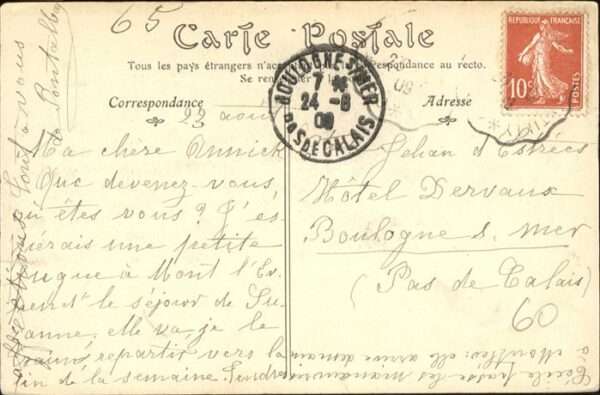 65
Carte Postale
Tous les pays étrangers n'acc correspondance au recto.
Se ren
Correspondance
Adresse
BOULOGNE S MER
7
24 - 8
09
PAS DE CALAIS
REPUBLIQUE FRANÇAISE
10c
POSTES
23 août
Ma chère Annick
Que devenez-vous,
où êtes vous ? J'es
pérais une petite
fugue à Mont l'Ev
pendt le séjour de Su
zanne, elle va, je le
crains, repartir vers la
fin de la semaine.
Jehan d'Estrées
Hôtel Dervaux
Boulogne s. mer
(Pas de Calais)
60
Cécile passe les
à elle arrive demain
à vous
de Pontalba